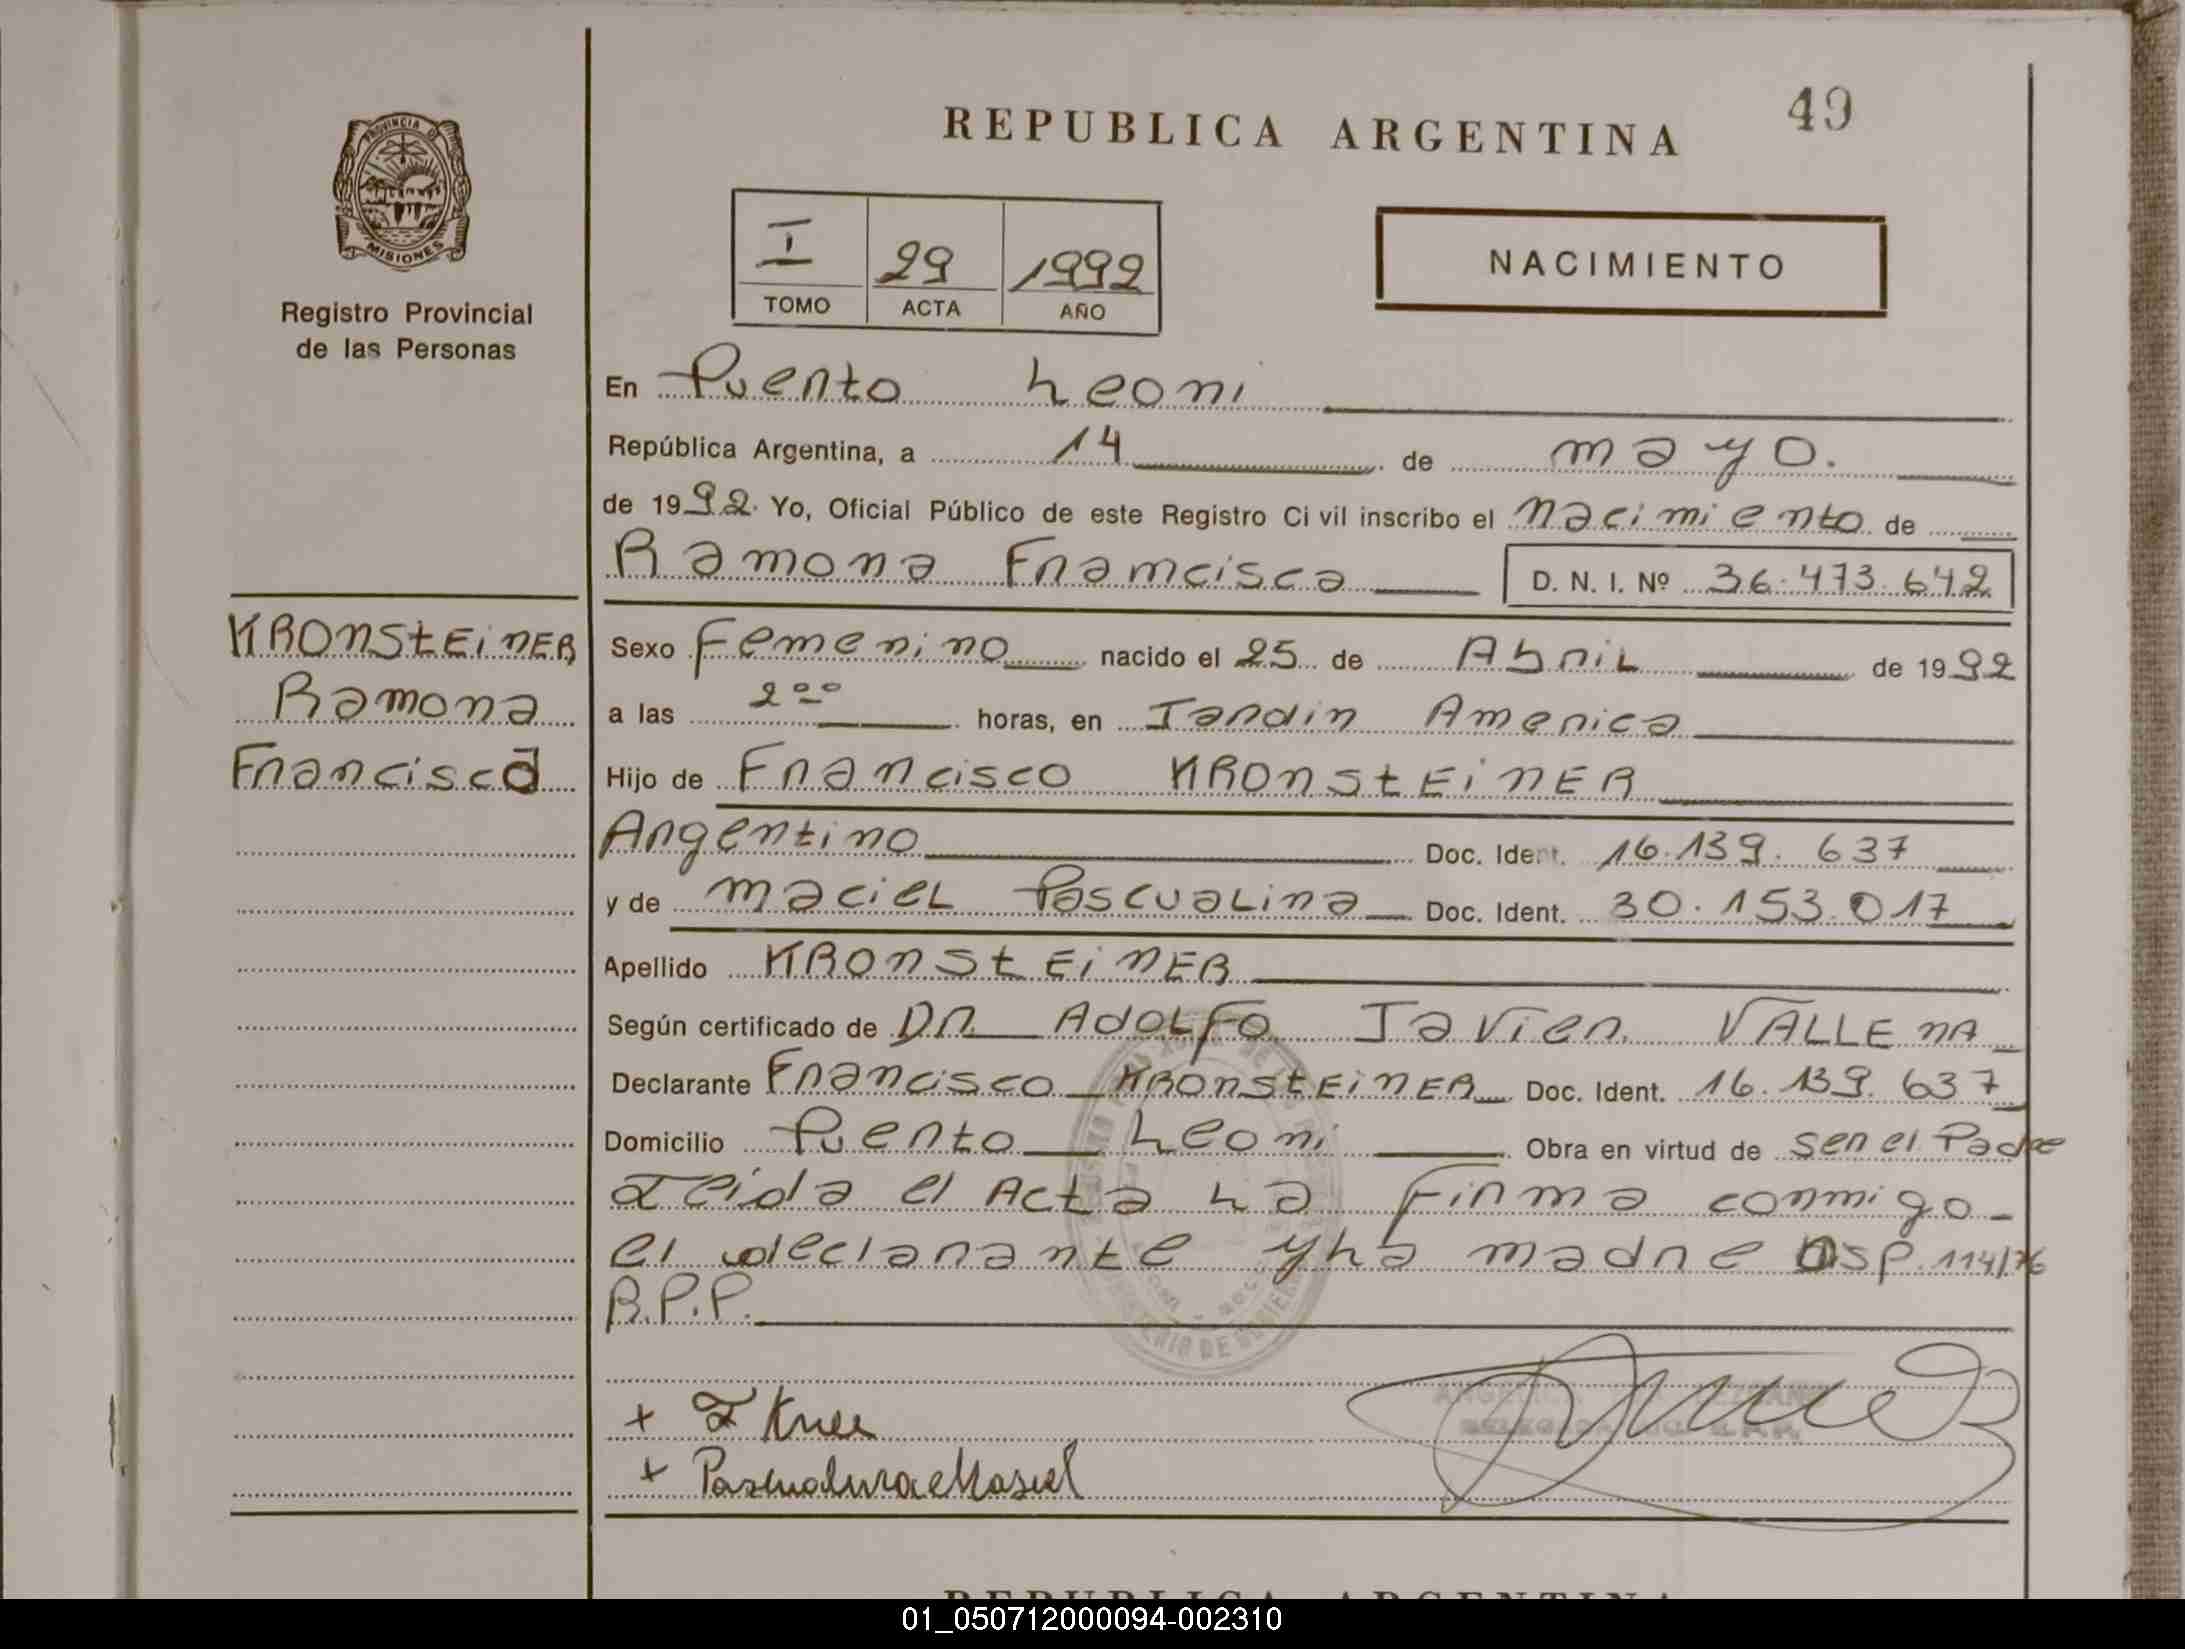 49
REPUBLICA ARGENTINA
PROVINCIA DE
MISIONES
Registro Provincial
de las Personas
I 29 1992
TOMO ACTA AÑO
NACIMIENTO
En Puerto Leoni
República Argentina, a 14 de mayo.
de 1992. Yo, Oficial Público de este Registro Ci vil inscribo el nacimiento de
Ramona Francisca D. N. I. Nº 36.473.642
KRONStEiNER
Ramona
Francisca
Sexo Femenino nacido el 25 de Abril de 1992
a las 2ºº horas, en Jardin America
Hijo de Francisco KRONStEiNER
Argentino Doc. Ident. 16.139.637
y de Maciel Pascualina Doc. Ident. 30.153.017
Apellido KRONStEiNER
Según certificado de DR Adolfo Javier VALLENA
Declarante Francisco KRONStEiNER Doc. Ident. 16.139.637
Domicilio Puerto Leoni Obra en virtud de ser el Padre
Leida el Acta La Firma conmigo
el declarante y La madre Dsp. 114/76
R.P.P.
+
+ Pascualina Masiel
MINISTERIO DE GOBIERNO
REPUBLICA ARGENTINA
01_050712000094-002310